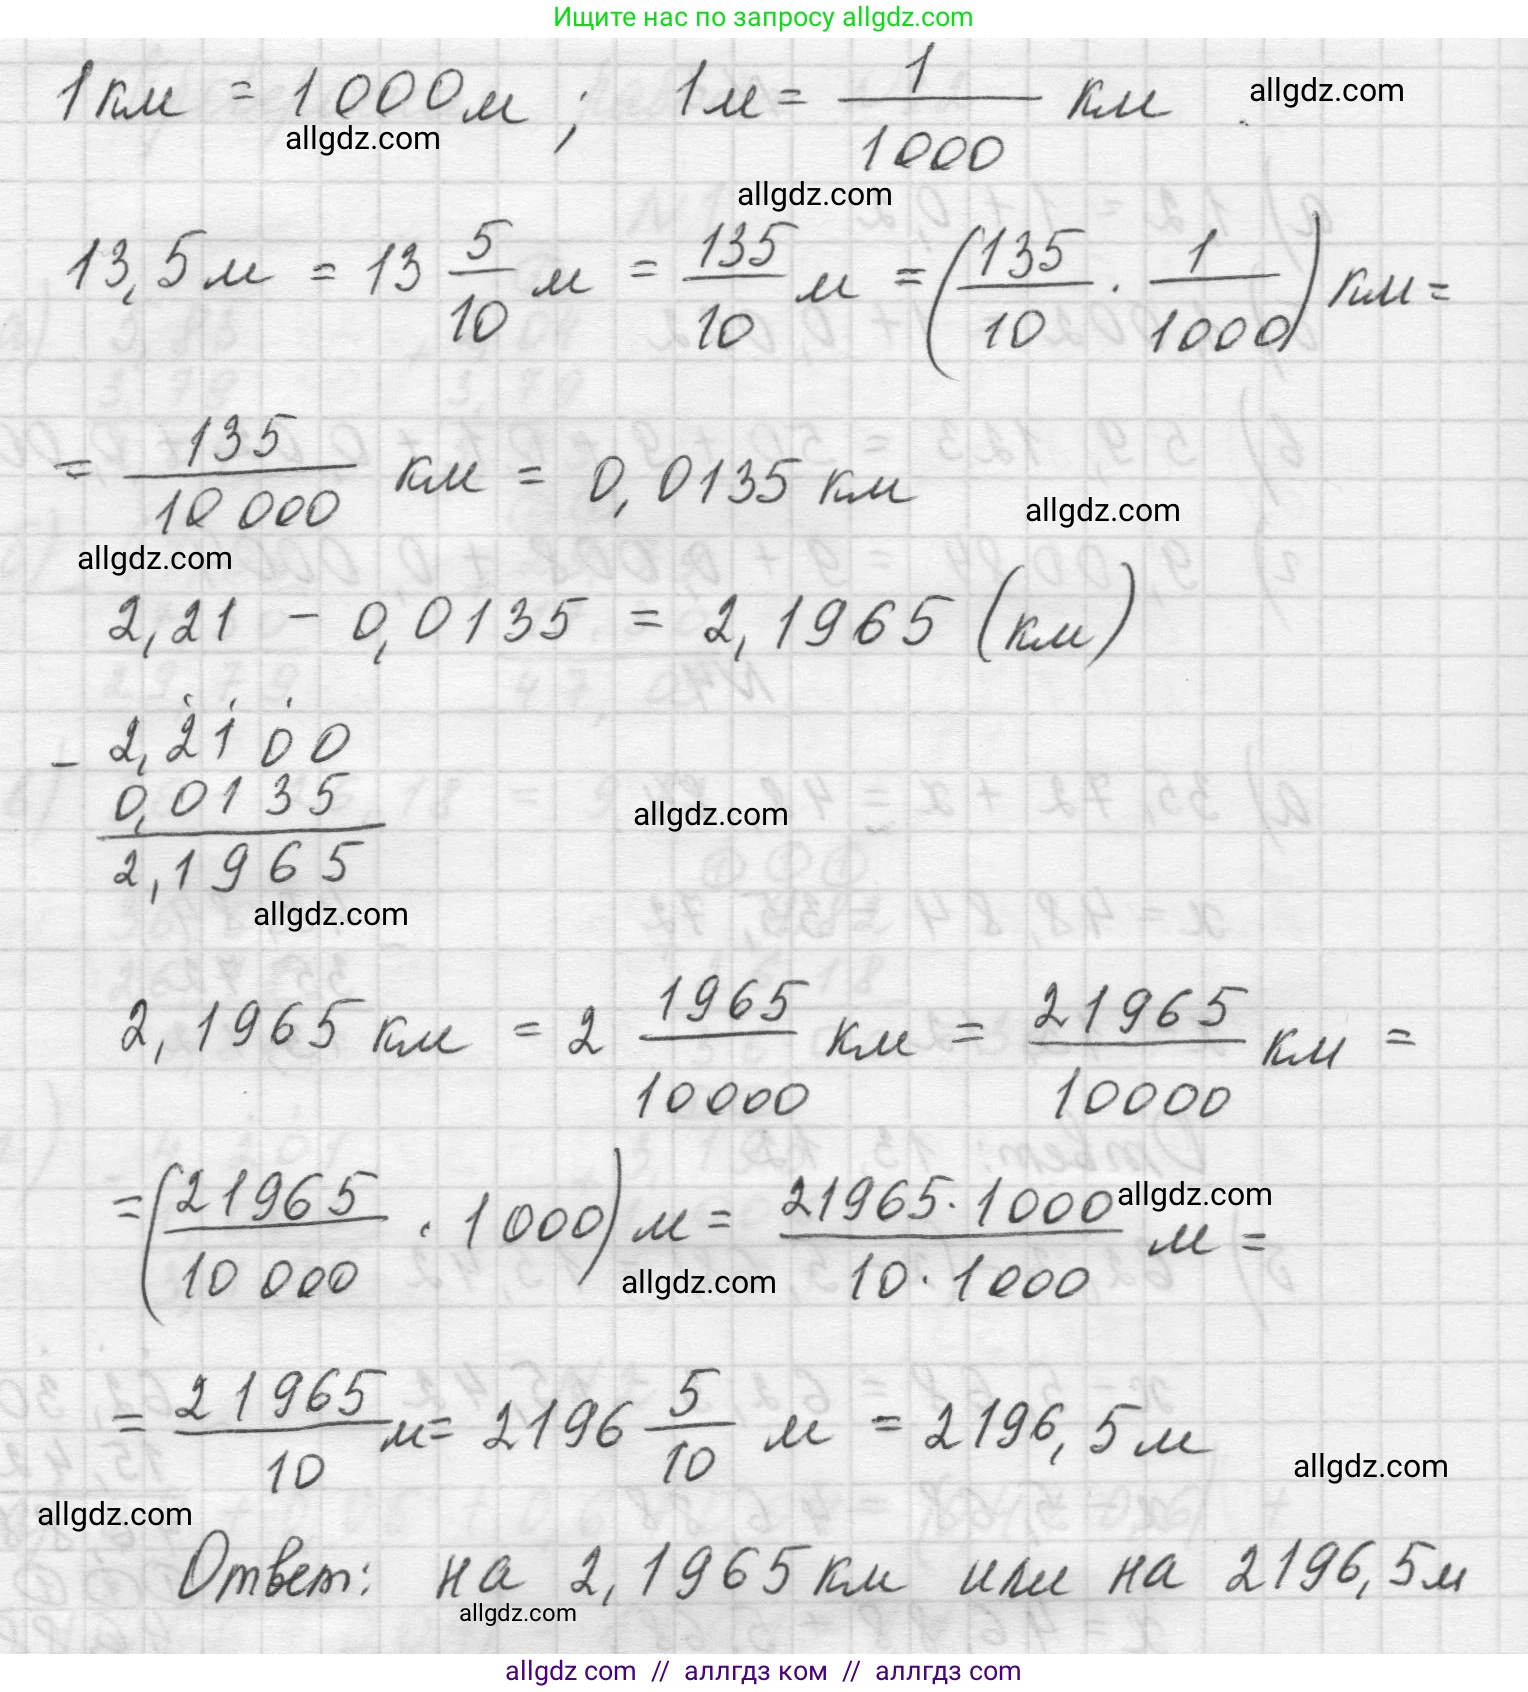 Ищите нас по запросу allgdz.com
1 км = 1000 м ; 1 м = 1/1000 км
allgdz.com
allgdz.com
allgdz.com
13,5 м = 13 5/10 м = 135/10 м = (135/10 · 1/1000) км =
= 135/10 000 км = 0,0135 км
allgdz.com
allgdz.com
2,21 - 0,0135 = 2,1965 (км)
- 2,2100
0,0135
2,1965
allgdz.com
allgdz.com
2,1965 км = 2 1965/10000 км = 21965/10000 км =
= (21965/10 000 · 1000) м = 21965 · 1000/10 · 1000 м =
allgdz.com
allgdz.com
= 21965/10 м = 2196 5/10 м = 2196,5 м
allgdz.com
allgdz.com
Ответ: на 2,1965 км или на 2196,5 м
allgdz.com
allgdz com // аллгдз ком // аллгдз com